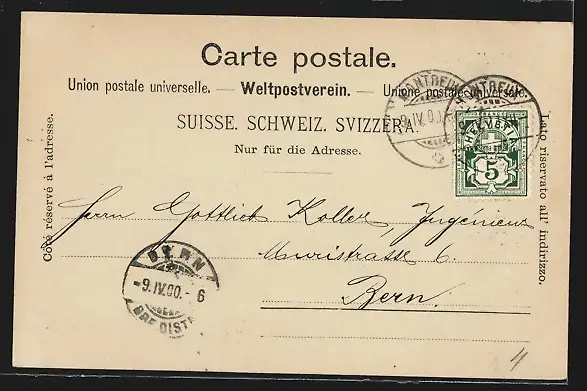 Carte postale.
Union postale universelle. — Weltpostverein. — Unione postale universale.
SUISSE. SCHWEIZ. SVIZZERA.
Nur für die Adresse.
Côté réservé à l'adresse.
Lato riservato all' indirizzo.
MONTREUX
9.IV.00.
MONTREUX
HELVETIA
5
Herrn Gottlieb Koller, Ingénieur
Muristrasse 6.
Bern.
BERN
-9.IV.00.-6
BRF.DIST.
4